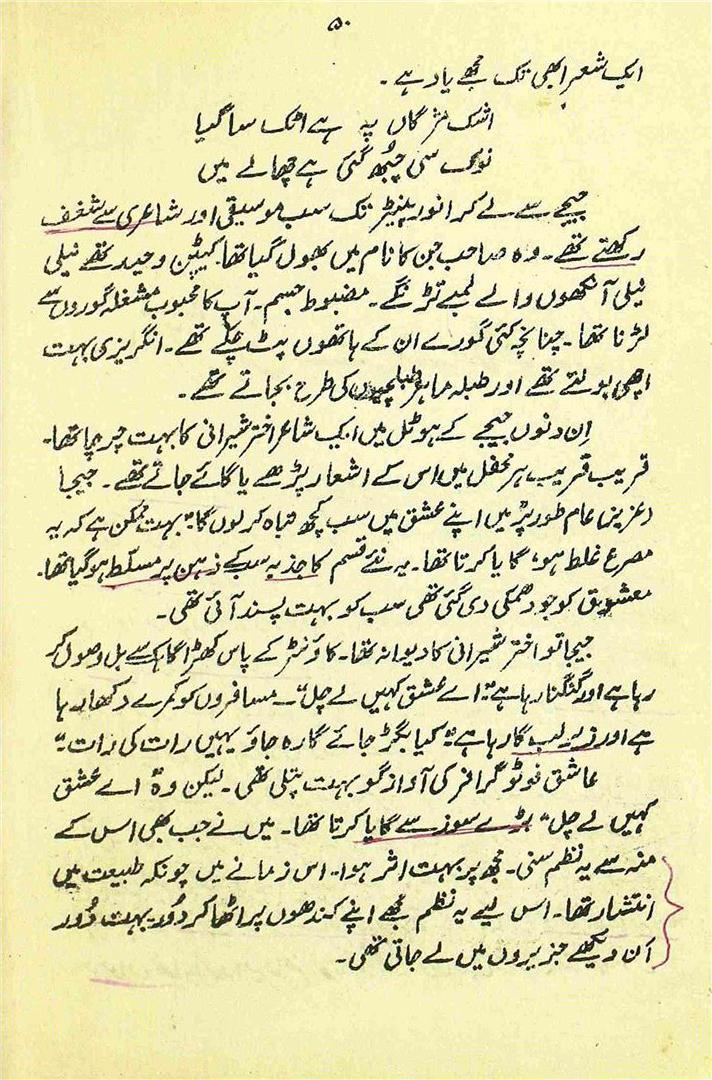 ۵۰
ایک شعر ابھی تک مجھے یاد ہے۔
اشک مژگاں پہ ہے اٹک سا گیا
نوک سی چُبھ گئی ہے چھالے میں
جیجے سے لے کر انور پینٹر تک سب موسیقی اور شاعری سے شغف
رکھتے تھے۔ وہ صاحب جن کا نام میں بھول گیا تھا کیپٹن وحید تھے نیلی
نیلی آنکھوں والے لمبے تڑنگے۔ مضبوط جسم۔ آپ کا محبوب مشغلہ گوروں سے
لڑنا تھا۔ چنانچہ کئی گورے ان کے ہاتھوں پٹ چکے تھے۔ انگریزی بہت
اچھی بولتے تھے اور طبلہ ماہر طبلچیوں کی طرح بجاتے تھے۔
اِن دنوں جیجے کے ہوٹل میں ایک شاعر اختر شیرانی کا بہت چرچا تھا۔
قریب قریب ہر محفل میں اس کے اشعار پڑھے یا گائے جاتے تھے۔ جیجا
(عزیز) عام طور پر ”میں اپنے عشق میں سب کچھ تباہ کر لوں گا“ بہت ممکن ہے کہ یہ
مصرع غلط ہو، گایا کرتا تھا۔ یہ نئے قسم کا جذبہ سب کے ذہن پر مسلّط ہو گیا تھا۔
معشوق کو جو دھمکی دی گئی تھی سب کو بہت پسند آئی تھی۔
جیجا تو اختر شیرانی کا دیوانہ تھا۔ کاؤنٹر کے پاس کھڑا گاہک سے بل وصول کر
رہا ہے اور گنگنا رہا ہے ”اے عشق کہیں لے چل“۔ مسافروں کو کمرے دکھا رہا
ہے اور زیرِ لب گا رہا ہے ”کیا بگڑ جائے گا رہ جاؤ یہیں رات کی رات“
عاشق فوٹو گرافر کی آواز گو بہت پتلی تھی۔ لیکن وہ ”اے عشق
کہیں لے چل“ بڑے سوز سے گایا کرتا تھا۔ میں نے جب بھی اس کے
منہ سے یہ نظم سنی۔ مجھ پر بہت اثر ہوا۔ اس زمانے میں چونکہ طبیعت میں
انتشار تھا۔ اس لیے یہ نظم مجھے اپنے کندھوں پر اٹھا کر دُور۔ بہت دُور
اَن دیکھے جزیروں میں لے جاتی تھی۔